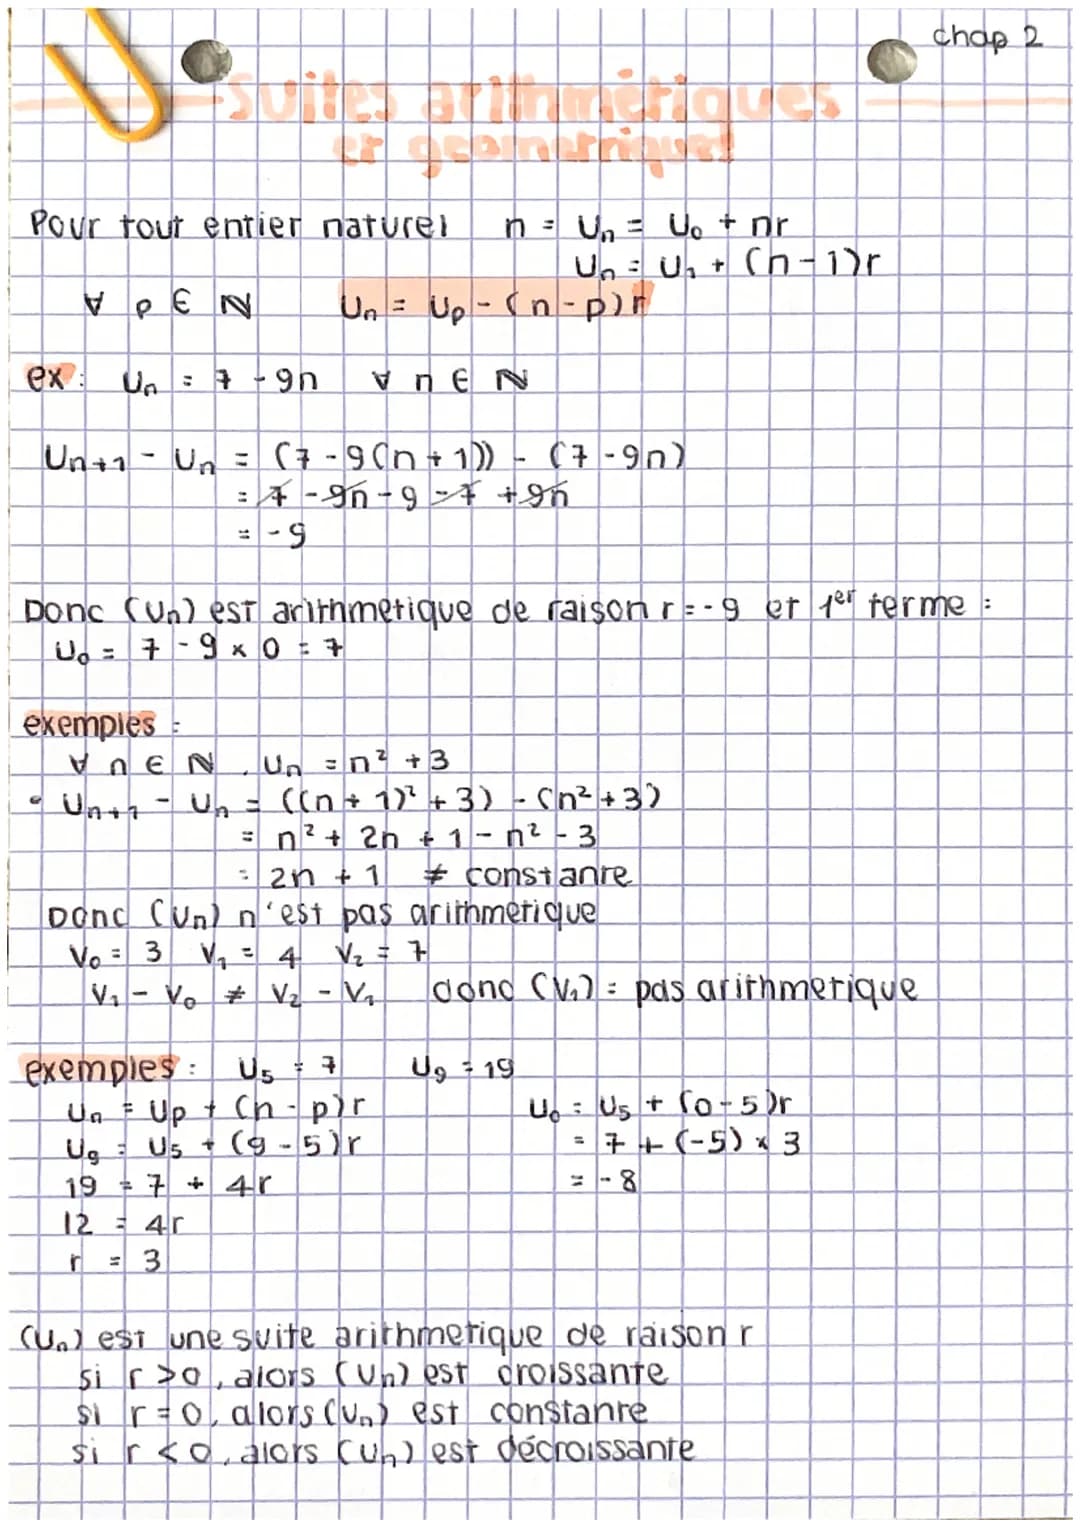 chap 2
Suites arithmétiques
et géométriques
Pour tout entier naturel n = Un = U₀ + nr
Un = U₁ + (n-1)r
∀ p ∈ ℕ Un = Up - (n-p)r
ex : Un = 7 - 9n ∀ n ∈ ℕ
Un+1 - Un = (7 - 9(n+1)) - (7 - 9n)
= 7 - 9n - 9 - 7 + 9n
= -9
Donc (Un) est arithmetique de raison r = -9 et 1er terme :
U₀ = 7 - 9 x 0 = 7
exemples :
∀ n ∈ ℕ, Un = n² + 3
• Un+1 - Un = ((n + 1)² + 3) - (n² + 3)
= n² + 2n + 1 - n² - 3
= 2n + 1 ≠ constante
Donc (Un) n'est pas arithmetique
V₀ = 3 V₁ = 4 V₂ = 7
V₁ - V₀ ≠ V₂ - V₁ donc (V₁) = pas arithmetique
exemples : U₅ = 7 U₉ = 19
Un = Up + (n - p)r U₀ = U₅ + (0-5)r
U₉ = U₅ + (9 - 5)r = 7 + (-5) x 3
19 = 7 + 4r = -8
12 = 4r
r = 3
(Un) est une suite arithmetique de raison r
si r > 0, alors (Un) est croissante
si r = 0, alors (Un) est constante
si r < 0, alors (Un) est décroissante